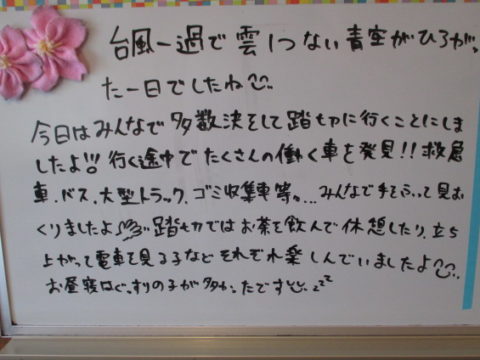 台風一過で雲1つない青空がひろがっ
た一日でしたね
今日はみんなで多数決をして踏切に行くことにしま
したよ!!! 行く途中でたくさんの働く車を発見!! 救急
車、バス、大型トラック、ゴミ収集車等。... みんなで手をふって見お
くりましたよ 踏切ではお茶を飲んで休憩したり、立ち
上がって電車を見る子など それぞれ楽しんでいましたよ
お昼寝はぐっすりの子が多かったです zzz